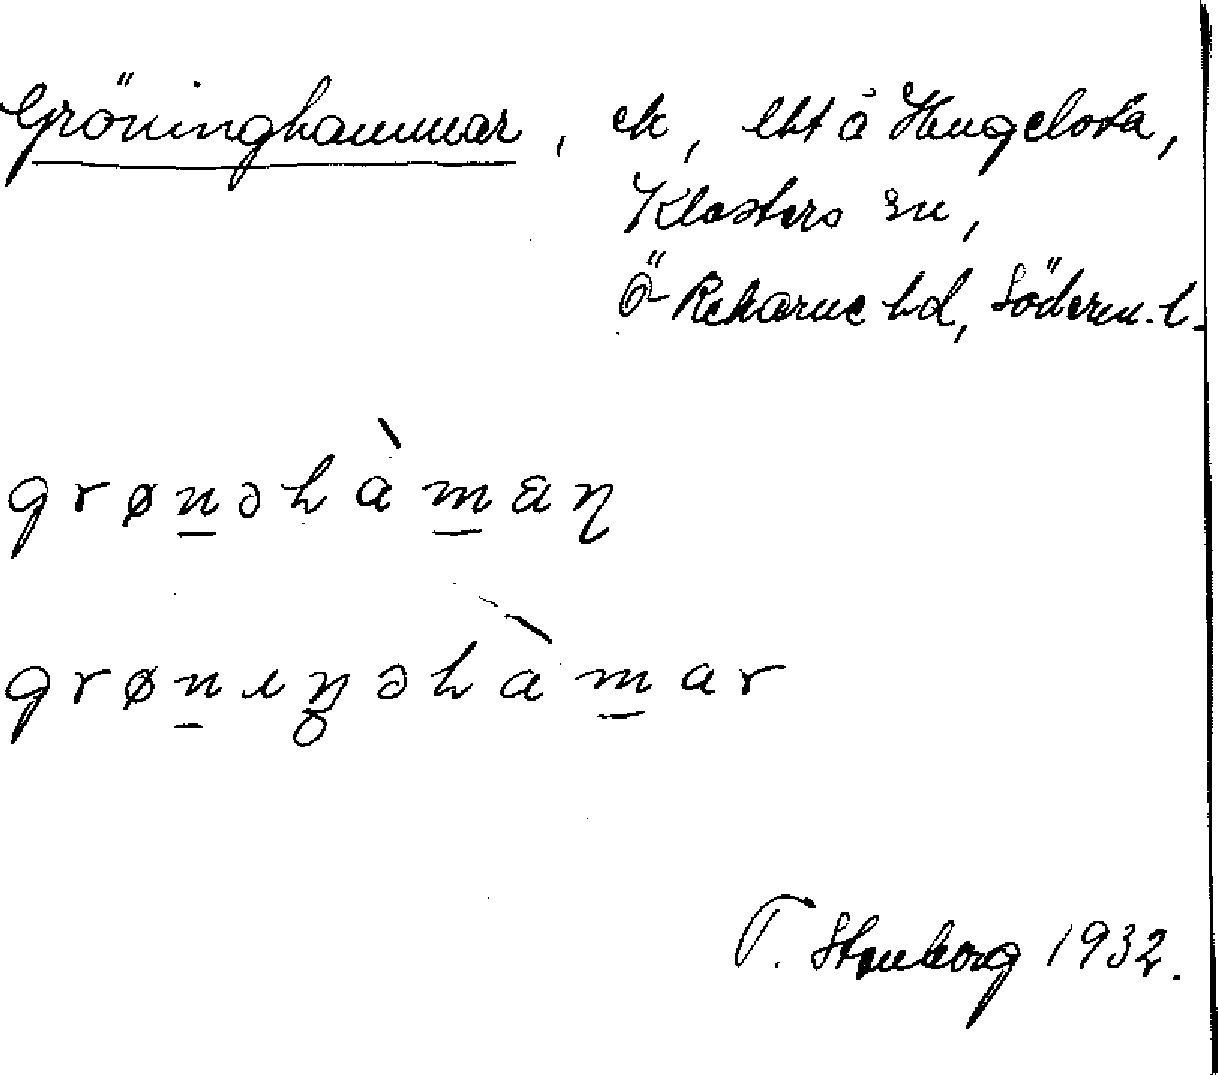 Gröninghammar, ek, ebt å Hugelsta,
Klosters sn,
Ö Rekarne hd, Söderm. l.
grøn̲əhàm̲aŋ
grøn̲ıŋəhàm̲ar
T. Stenborg 1932.